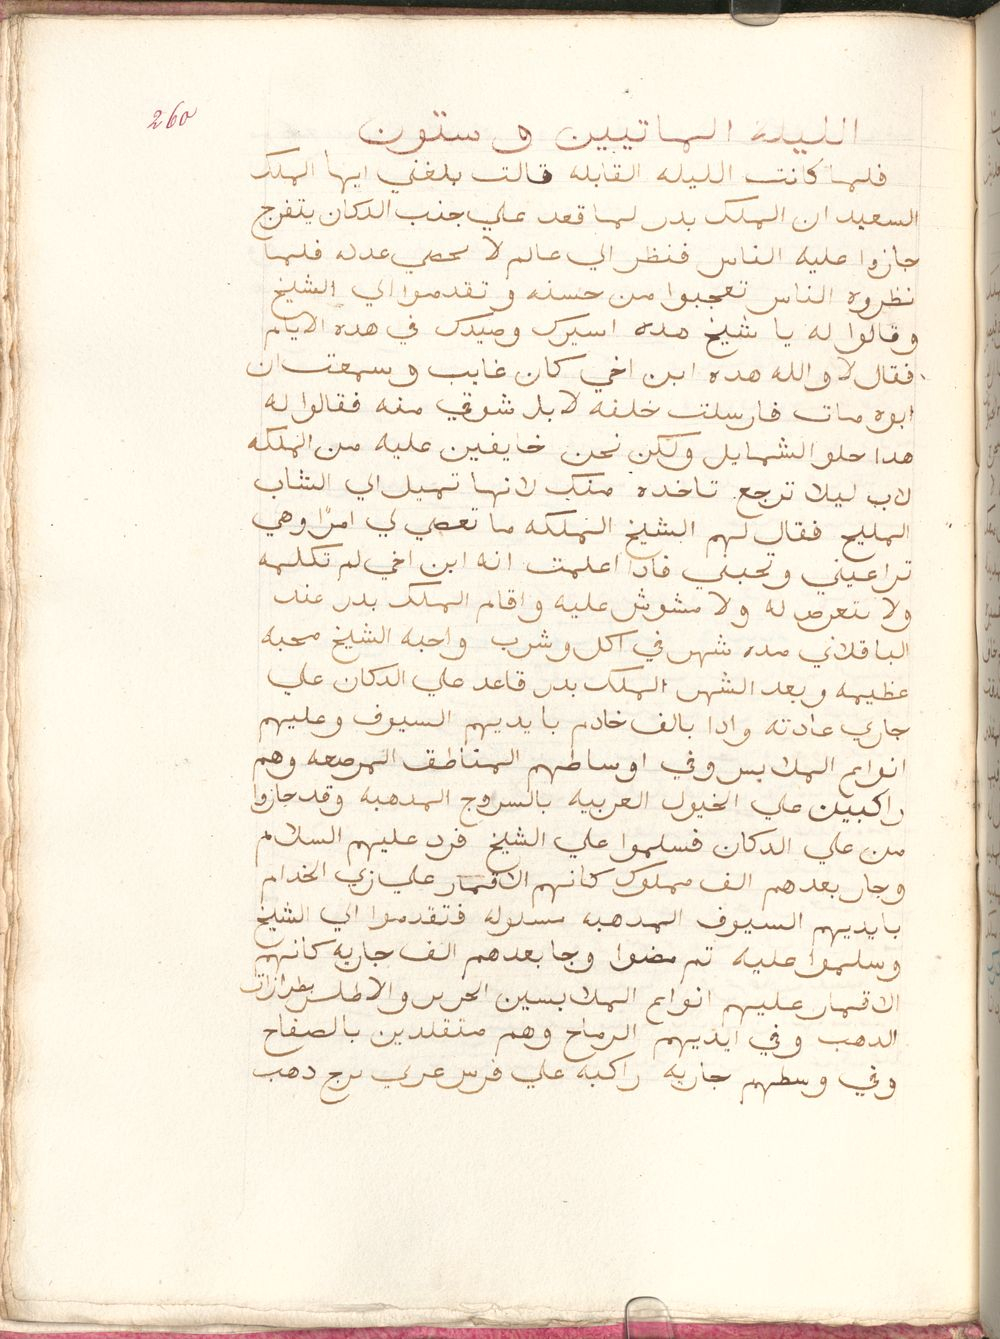 260
الليله الماتيين و ستون
فلما كانت الليله القابله قالت بلغني ايها الملك
السعيد ان الملك بدر لما قعد علي جنب الدكان يتفرج
جازوا عليه الناس فنظر الي عالم لا يحصي عدله فلما
نظروه الناس تعجبوا من حسنه و تقدموا الي الشيخ
وقالوا له يا شيخ هده اسيرك وصيدك في هده الايام
فقال لا و الله هده ابن اخي كان غايب و سمعت ان
ابوه مات فارسلت خلفه لابل شوقي منه فقالوا له
هدا حلو الشمايل ولكن نحن خايفين عليه من الملكه
لاب ليلا ترجع تاخده منك لانها تميل الي الشاب
المليح فقال لهم الشيخ الملكه ما تعصي لي امرًا وهي
تراعيني و تحبني فادا اعلمت انه ابن اخي لم تكلمه
ولا تتعرض له ولا مشوش عليه و اقام الملك بدر عند
الباقلاني مده شهر في اكل و شرب واحبه الشيخ محبه
عظيمه و بعد الشهر الملك بدر قاعد علي الدكان علي
جاري عادته وادا بالف خادم بايديهم السيوف و عليهم
انواع الملابس وفي اوساطهم المناطق المرصعه وهم
راكبين علي الخيول العربيه بالسروج المدهبه وقد جازوا
من علي الدكان فسلموا علي الشيخ فرد عليهم السلام
وجاز بعدهم الف مملوك كانهم الاقمار علي زي الخدام
بايديهم السيوف المدهبه مسلوله فتقدموا الي الشيخ
وسلموا عليه تم مضوا وجا بعدهم الف جاريه كانهم
الاقمار عليهم انواع الملابسين الحرير والاطلس بطرازات
الدهب وفي ايديهم الرماح وهم متقلدين بالصفاح
وفي وسطهم جاريه راكبه علي فرس عربي سرج دهب